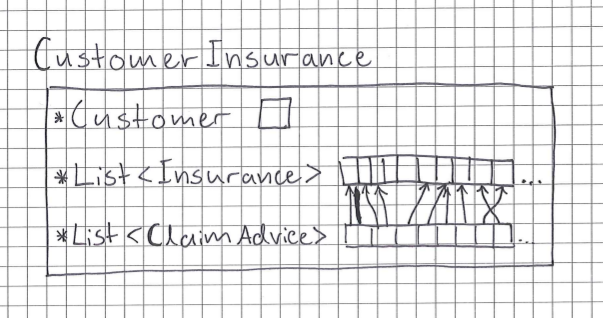 CustomerInsurance
*Customer
*List<Insurance> ...
*List<ClaimAdvice> ...